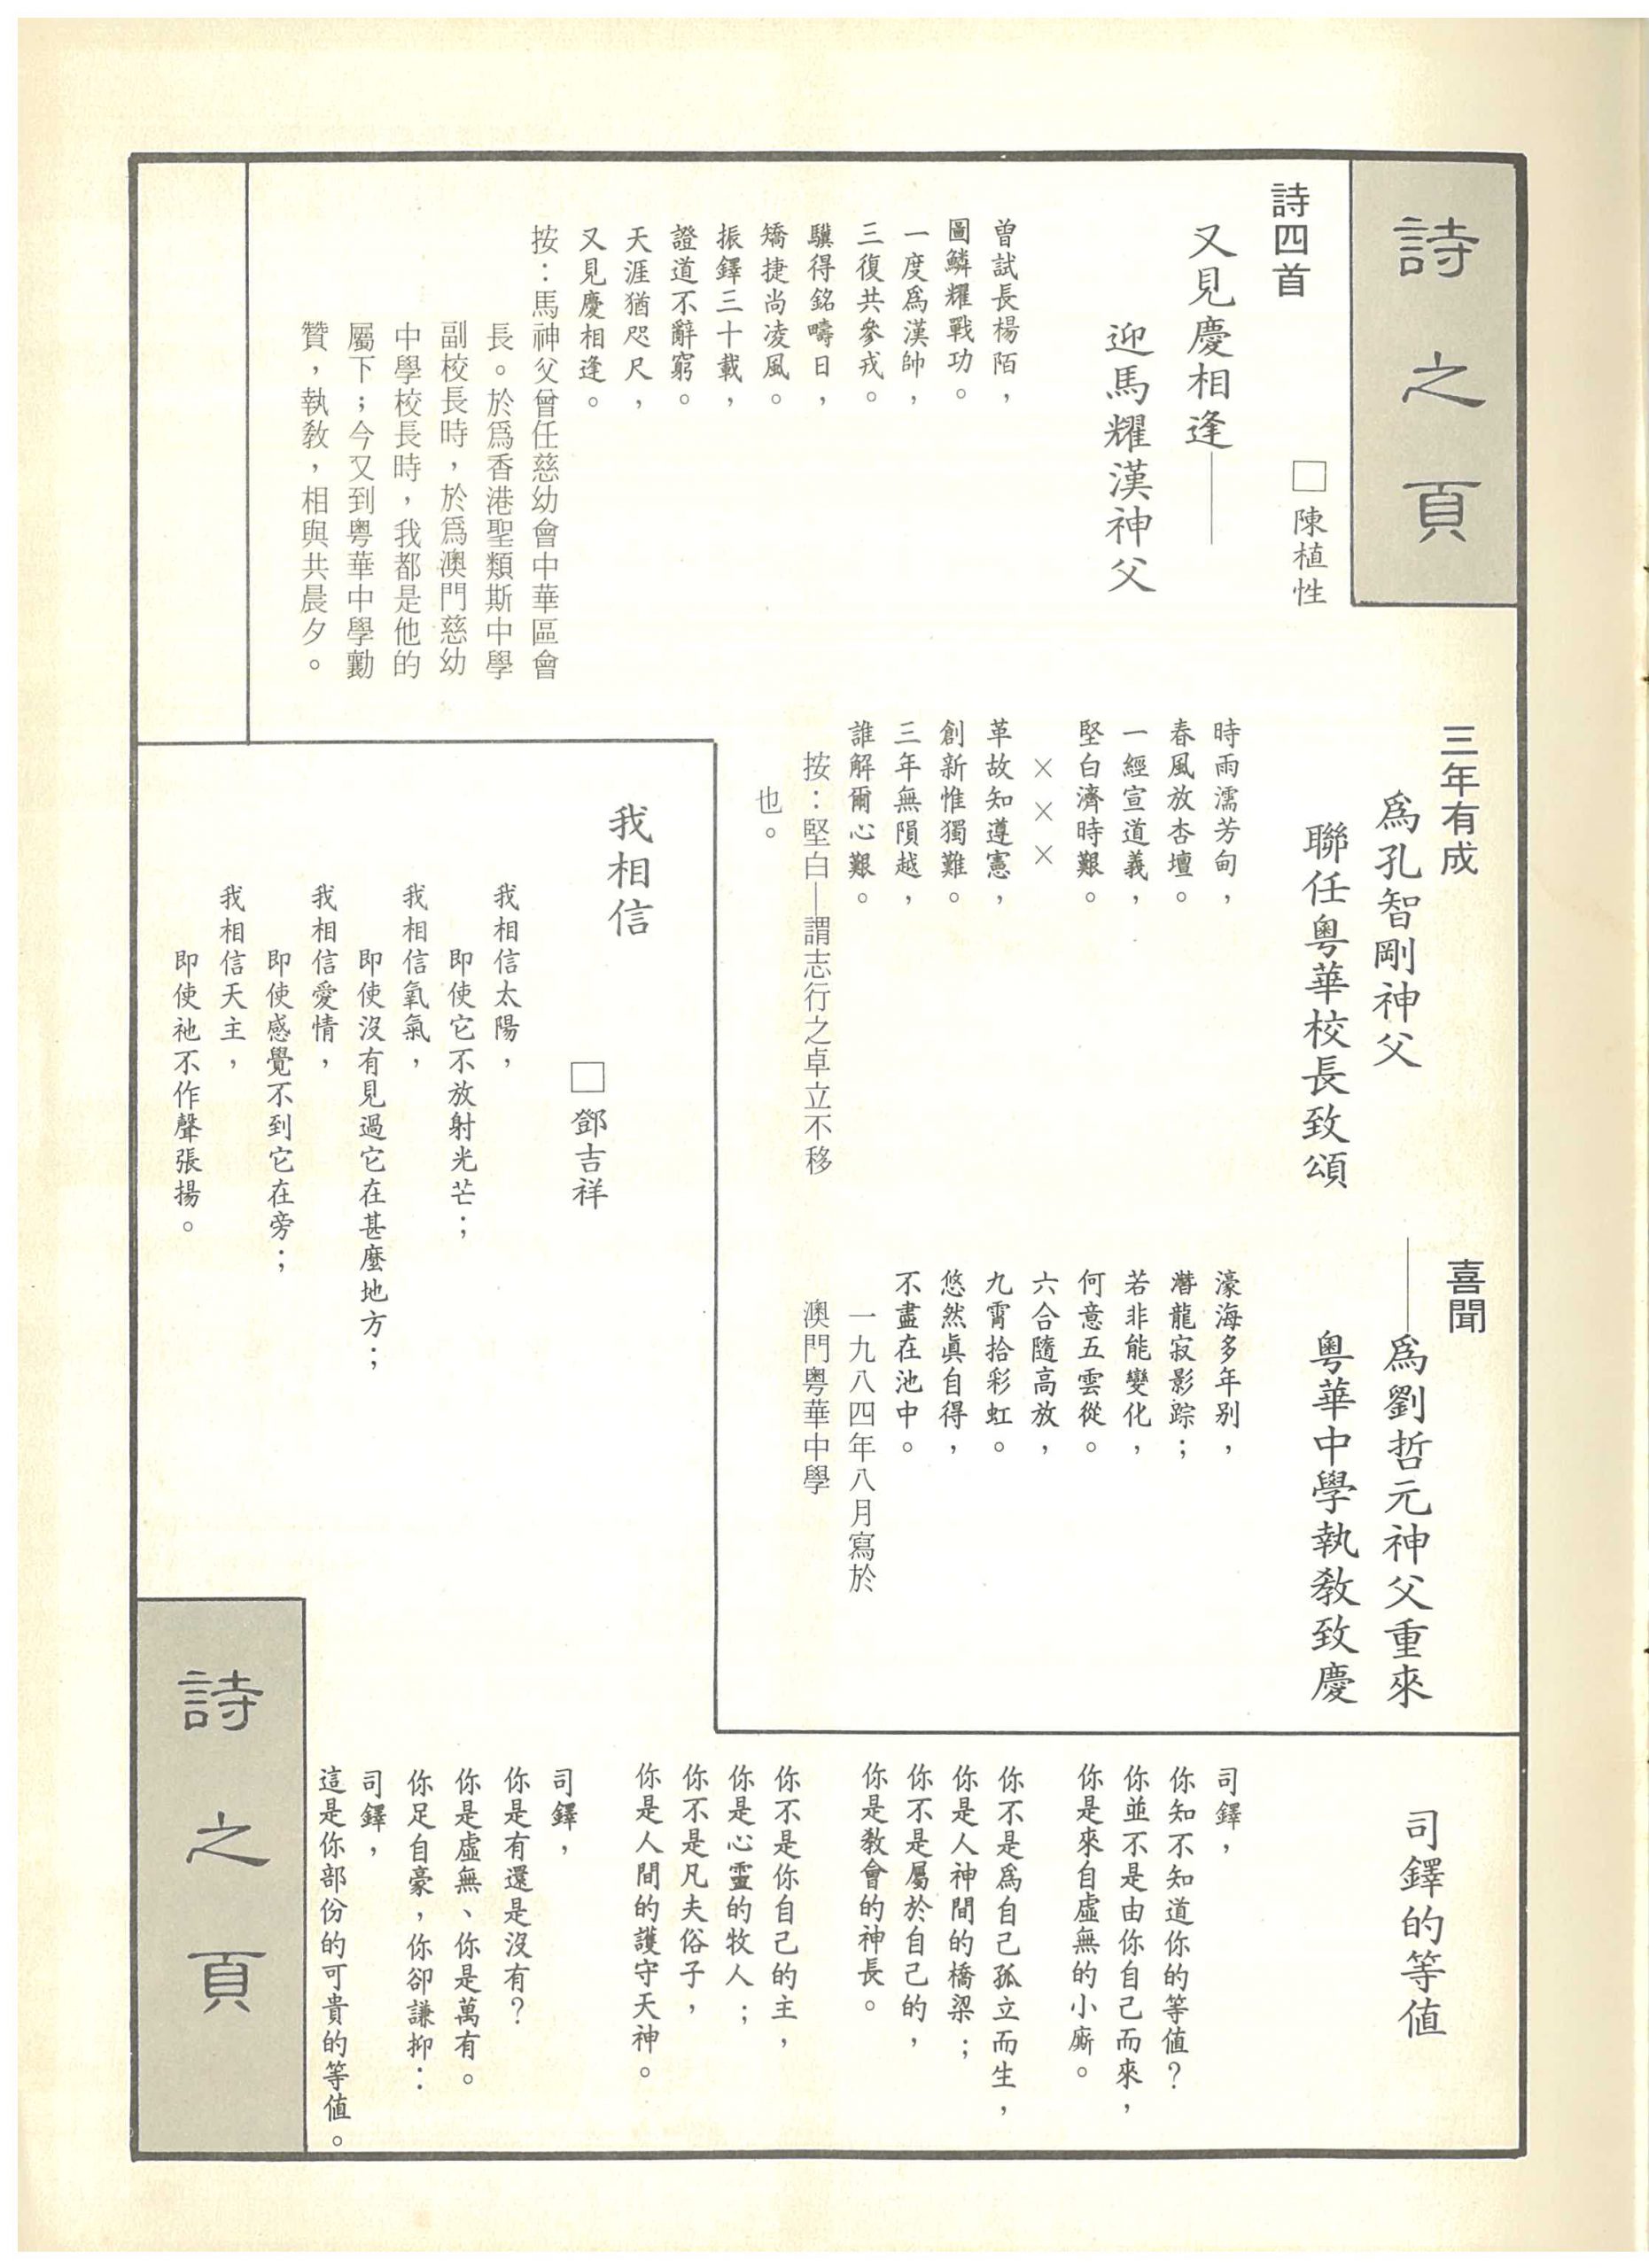 詩之頁
詩四首
□陳植性
又見慶相逢——
迎馬耀漢神父
曾試長楊陌，
圖鱗耀戰功。
一度爲漢帥，
三復共參戎。
驥得銘疇日，
矯捷尚凌風。
振鐸三十載，
證道不辭窮。
天涯猶咫尺，
又見慶相逢。
按：馬神父曾任慈幼會中華區會
長。於爲香港聖類斯中學
副校長時，於爲澳門慈幼
中學校長時，我都是他的
屬下；今又到粵華中學勷
贊，執教，相與共晨夕。
三年有成
爲孔智剛神父
聯任粵華校長致頌
時雨濡芳甸，
春風放杏壇。
一經宣道義，
堅白濟時艱。
×××
革故知遵憲，
創新惟獨難。
三年無隕越，
誰解爾心艱。
按：堅白—謂志行之卓立不移
也。
喜聞
——爲劉哲元神父重來
粵華中學執教致慶
濠海多年别，
潛龍寂影踪；
若非能變化，
何意五雲從。
六合隨高放，
九霄拾彩虹。
悠然眞自得，
不盡在池中。
一九八四年八月寫於
澳門粵華中學
我相信
□鄧吉祥
我相信太陽，
即使它不放射光芒；
我相信氧氣，
即使沒有見過它在甚麼地方；
我相信愛情，
即使感覺不到它在旁；
我相信天主，
即使祂不作聲張揚。
司鐸的等值
司鐸，
你知不知道你的等值？
你並不是由你自己而來，
你是來自虛無的小廝。
你不是爲自己孤立而生，
你是人神間的橋梁；
你不是屬於自己的，
你是教會的神長。
你不是你自己的主，
你是心靈的牧人；
你不是凡夫俗子，
你是人間的護守天神。
司鐸，
你是有還是沒有？
你是虛無、你是萬有。
你足自豪，你卻謙抑：
司鐸，
這是你部份的可貴的等值。
詩之頁